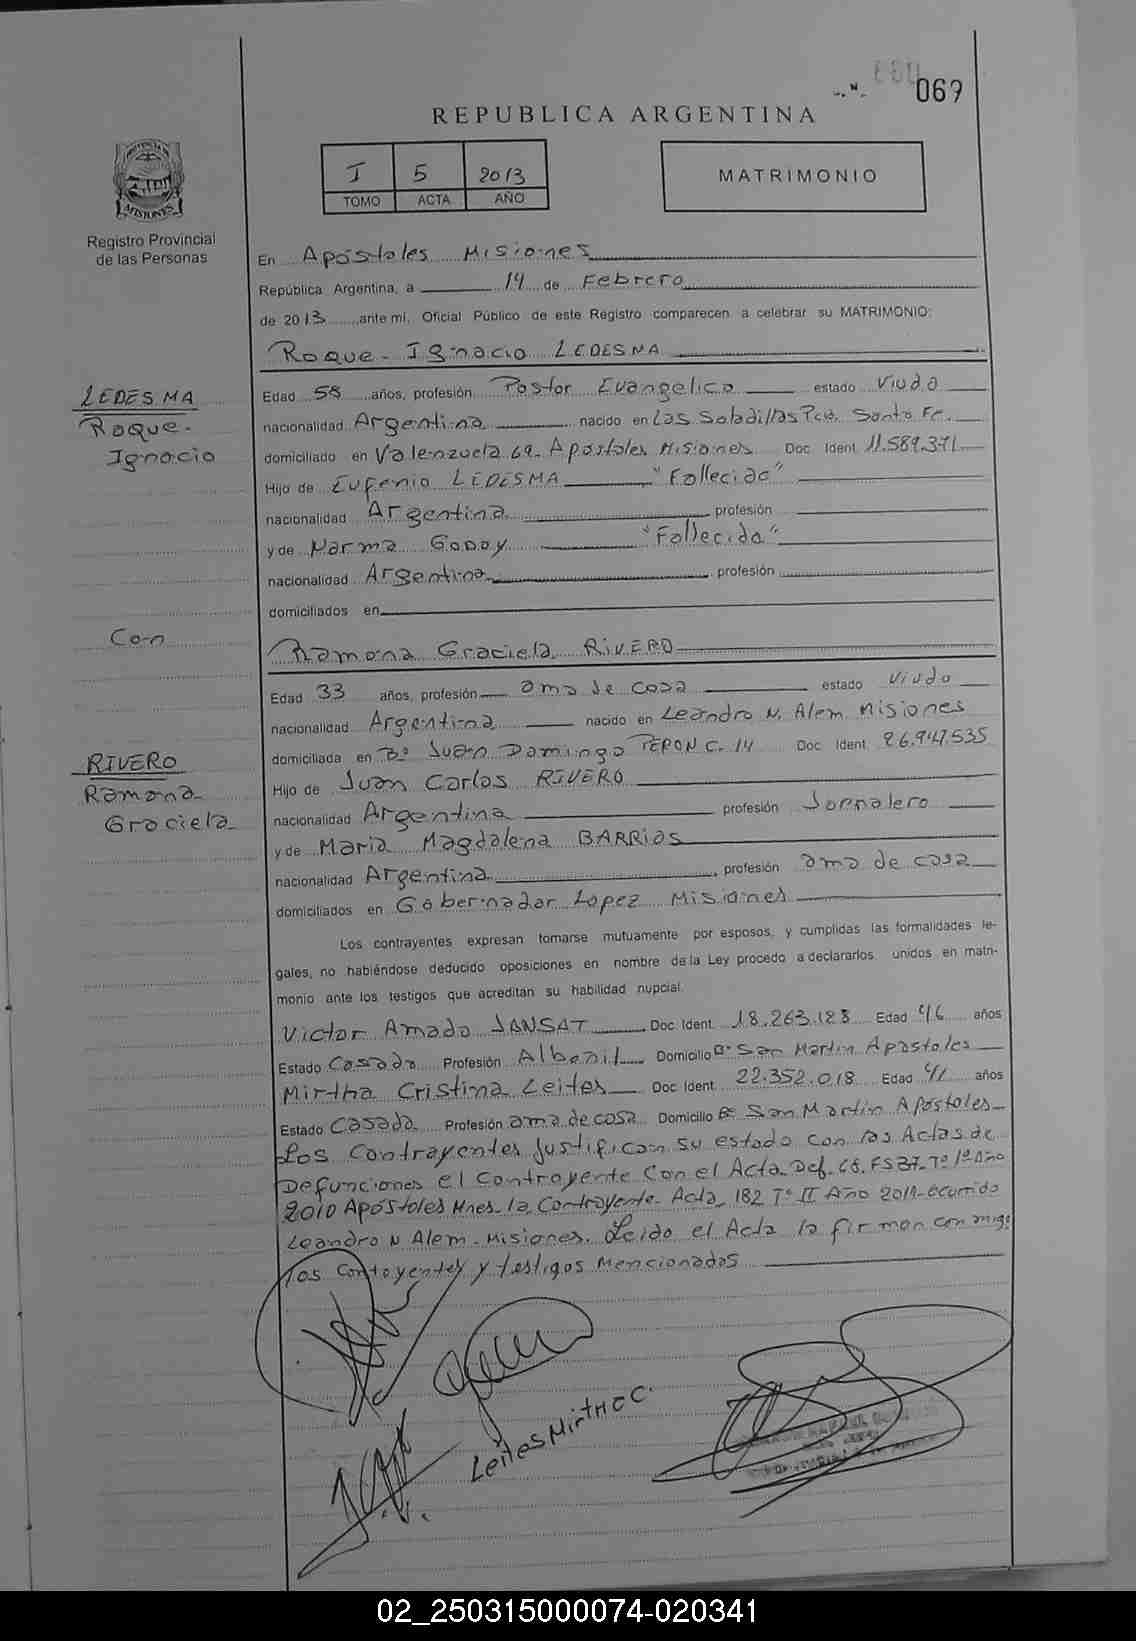 069
REPUBLICA ARGENTINA
I 5 2013
TOMO ACTA AÑO
MATRIMONIO
PROVINCIA DE
MISIONES
Registro Provincial
de las Personas
En Apóstoles Misiones
República Argentina, a 14 de Febrero
de 2013 ante mi, Oficial Público de este Registro comparecen a celebrar su MATRIMONIO:
Roque- Ignacio LEDESMA
LEDESMA
Roque-
Ignacio
Edad 58 años, profesión Pastor Evangelico estado Viudo
nacionalidad Argentina nacido en Las Saladillas Pcia. Santa Fe.
domiciliado en Valenzuela 69- Apóstoles Misiones Doc Ident 11.589.371
Hijo de Eugenio LEDESMA "Fallecido"
nacionalidad Argentina profesión
y de Norma Godoy "Fallecida"
nacionalidad Argentina profesión
domiciliados en
Con
Ramona Graciela RIVERO
Edad 33 años, profesión ama de casa estado Viuda
nacionalidad Argentina nacido en Leandro N. Alem Misiones
RIVERO
Ramona
Graciela
domiciliada en B° Juan Domingo PERON C. 14 Doc Ident 26.947.535
Hijo de Juan Carlos RIVERO
nacionalidad Argentina profesión Jornalero
y de Maria Magdalena BARRIOS
nacionalidad Argentina profesión ama de casa
domiciliados en Gobernador Lopez Misiones
Los contrayentes expresan tomarse mutuamente por esposos, y cumplidas las formalidades le-
gales, no habiéndose deducido oposiciones en nombre de la Ley procedo a declararlos unidos en matri-
monio ante los testigos que acreditan su habilidad nupcial.
Victor Amado JANSAT Doc Ident 18.263.123 Edad 46 años
Estado Casado Profesión Albañil Domicilio B° San Martin Apóstoles
Mirtha Cristina Leites Doc Ident 22.352.018 Edad 41 años
Estado Casada Profesión ama de casa Domicilio B° San Martin Apóstoles
Los Contrayentes Justifican su estado con las Actas de
Defunciones el Contrayente Con el Acta Def. 68. FS 37. T° 1° Año
2010 Apóstoles Mnes. la Contrayente- Acta 182 T° II Año 2011- ocurrido
Leandro N Alem- Misiones. Leido el Acta la firman conmigo
los Contoyentes y testigos Mencionados
Leites Mirtha C.
02_250315000074-020341